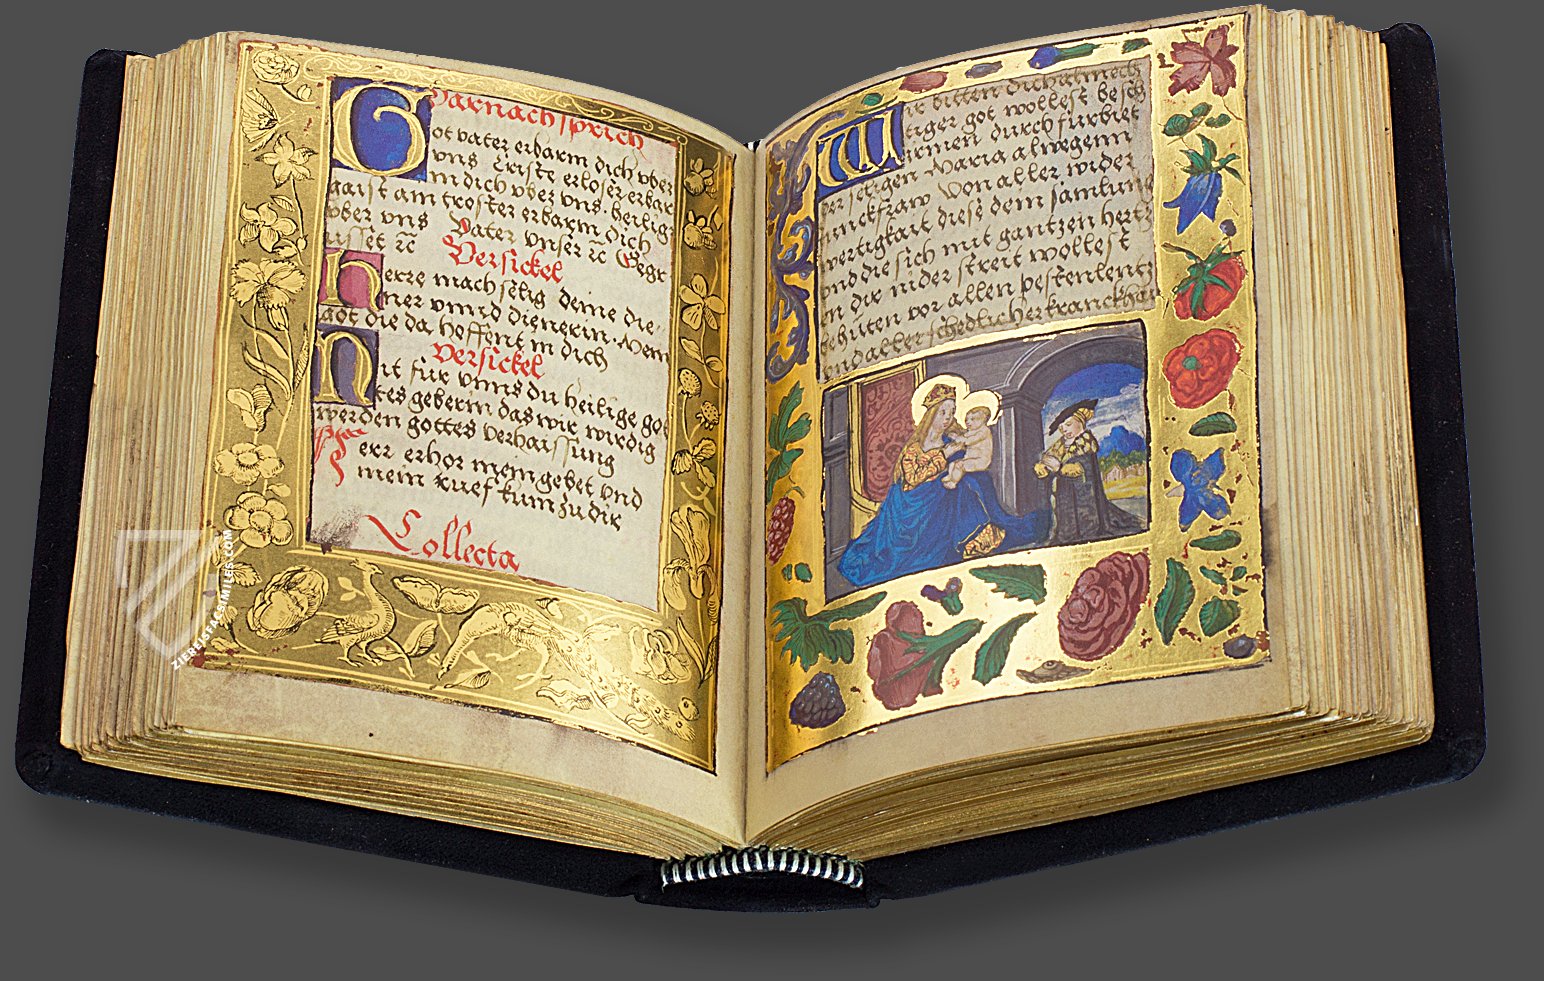 Darnach sprich
Got vater erbarm dich vber
vns Criste erloser erbar
m dich vber vns heilig
gaist am troster erbarm dich
vber vns Vater vnser ꝛc Gegr
usset ꝛc
Versickel
herre mach selig deine die
ner vnnd dienerin. Mein
got die da hoffent in dich
Versickel
nit für vnns du heilige go
tes geberin das wir wirdig
werden gottes verhaissung
herr erhor mein gebet vnd
mein rueff kum zu dir
Collecta
Wir bitten dich almech
tiger got wollest besch
irmen durch fürbiet
der seligen Maria alwegenn
iunckfraw Von aller wider
wertigkait diese dem samlung
vnd die sich mit gantzen hertz
en dir nider streit wollest
behüten vor allen pestenlentz
vnd aller schedlicher kranckhai
ZIEREISFACSIMILES.COM